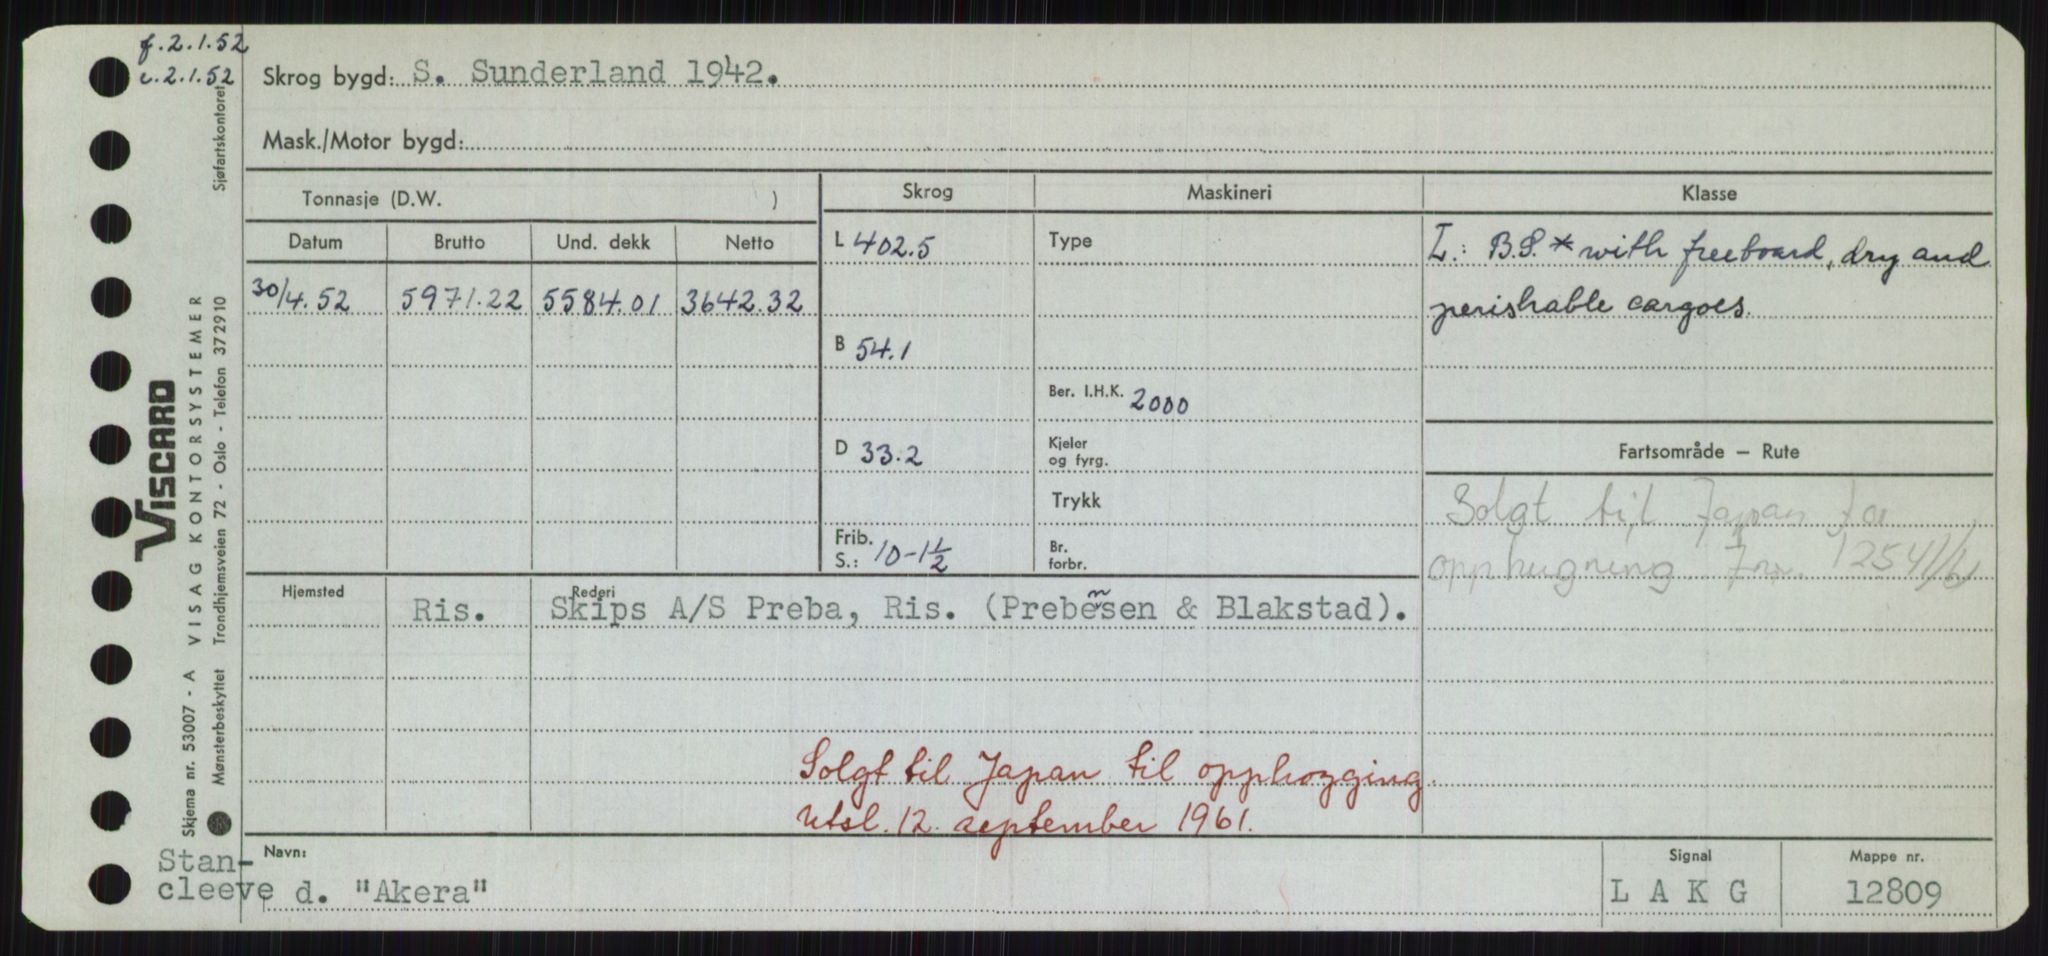 f.2.1.52
i.2.1.52
Skrog bygd: S. Sunderland 1942.
Mask./Motor bygd:
Tonnasje (D.W. )
Skrog
Maskineri
Klasse
Datum Brutto Und. dekk Netto
30/4.52 5971.22 5584.01 3642.32
L 402.5
B 54.1
D 33.2
Frib. S.: 10-1½
Type
Ber. I.H.K. 2000
Kjeler og fyrg.
Trykk
Br. forbr.
L: B.S.* with freeboard, dry and
perishable cargoes.
Fartsområde – Rute
Solgt til Japan for
opphugning. Jnr. 12541/61
Hjemsted
Rederi
Ris. Skips A/S Preba, Ris. (Prebensen & Blakstad).
Solgt til Japan til opphogging.
Utsl. 12. september 1961.
Navn:
Stan-
cleeve d. "Akera"
Signal
L A K G
Mappe nr.
12809
VISCARD
Skjema nr. 53007 - A VISAG KONTORSYSTEMER
Mønsterbeskyttet Trondhjemsveien 72 - Oslo - Telefon 372910
Sjøfartskontoret